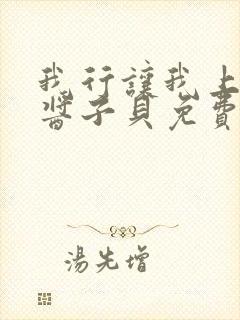 我行讓我上
醬子貝免費
湯先增